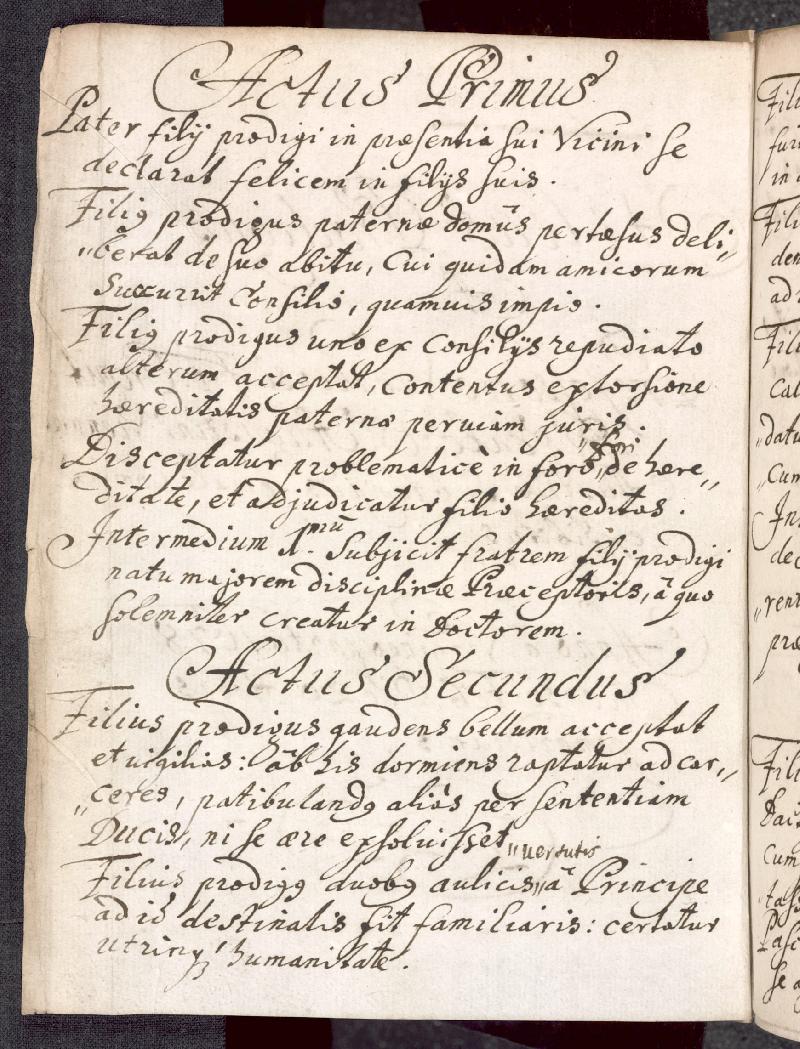 Actus Primus
Pater filij prodigi in præsentia sui Vicini se
declarat felicem in filijs suis.
Filiꝰ prodigus paternæ domûs pertæsus deli„
„berat de suo abitu, cui quidam amicorum
succurrit Consilio, quamuis impio.
Filiꝰ prodigus uno ex Consilijs repudiato
alterum acceptat, Contentus extorsione
hæreditatis paternæ per uiam juris.
„fori
Disceptatur problematicè in foro„ de hære„
ditate, et adjudicatur filio hæreditas.
Intermedium 1.mũ Subjicit fratrem filij prodigi
natu majorem disciplinæ Præceptoris, â quo
solemniter creatur in Doctorem.
Actus Secundus
Filius prodigus gaudens bellum acceptat
et uigilias: âb his dormiens raptatur ad car„
„ceres, patibulandꝰ aliàs per sententiam
Ducis, ni se ære exsoluisset
„uersutis
Filius prodigꝰ duobꝰ aulicis„ â Principe
ad id destinatis fit familiaris: certatur
utrinqꝫ humanitate.
Fili
in
Fili
ad
Fili
„datu
„cum
In
„rent
præ
Fili
Cum
se